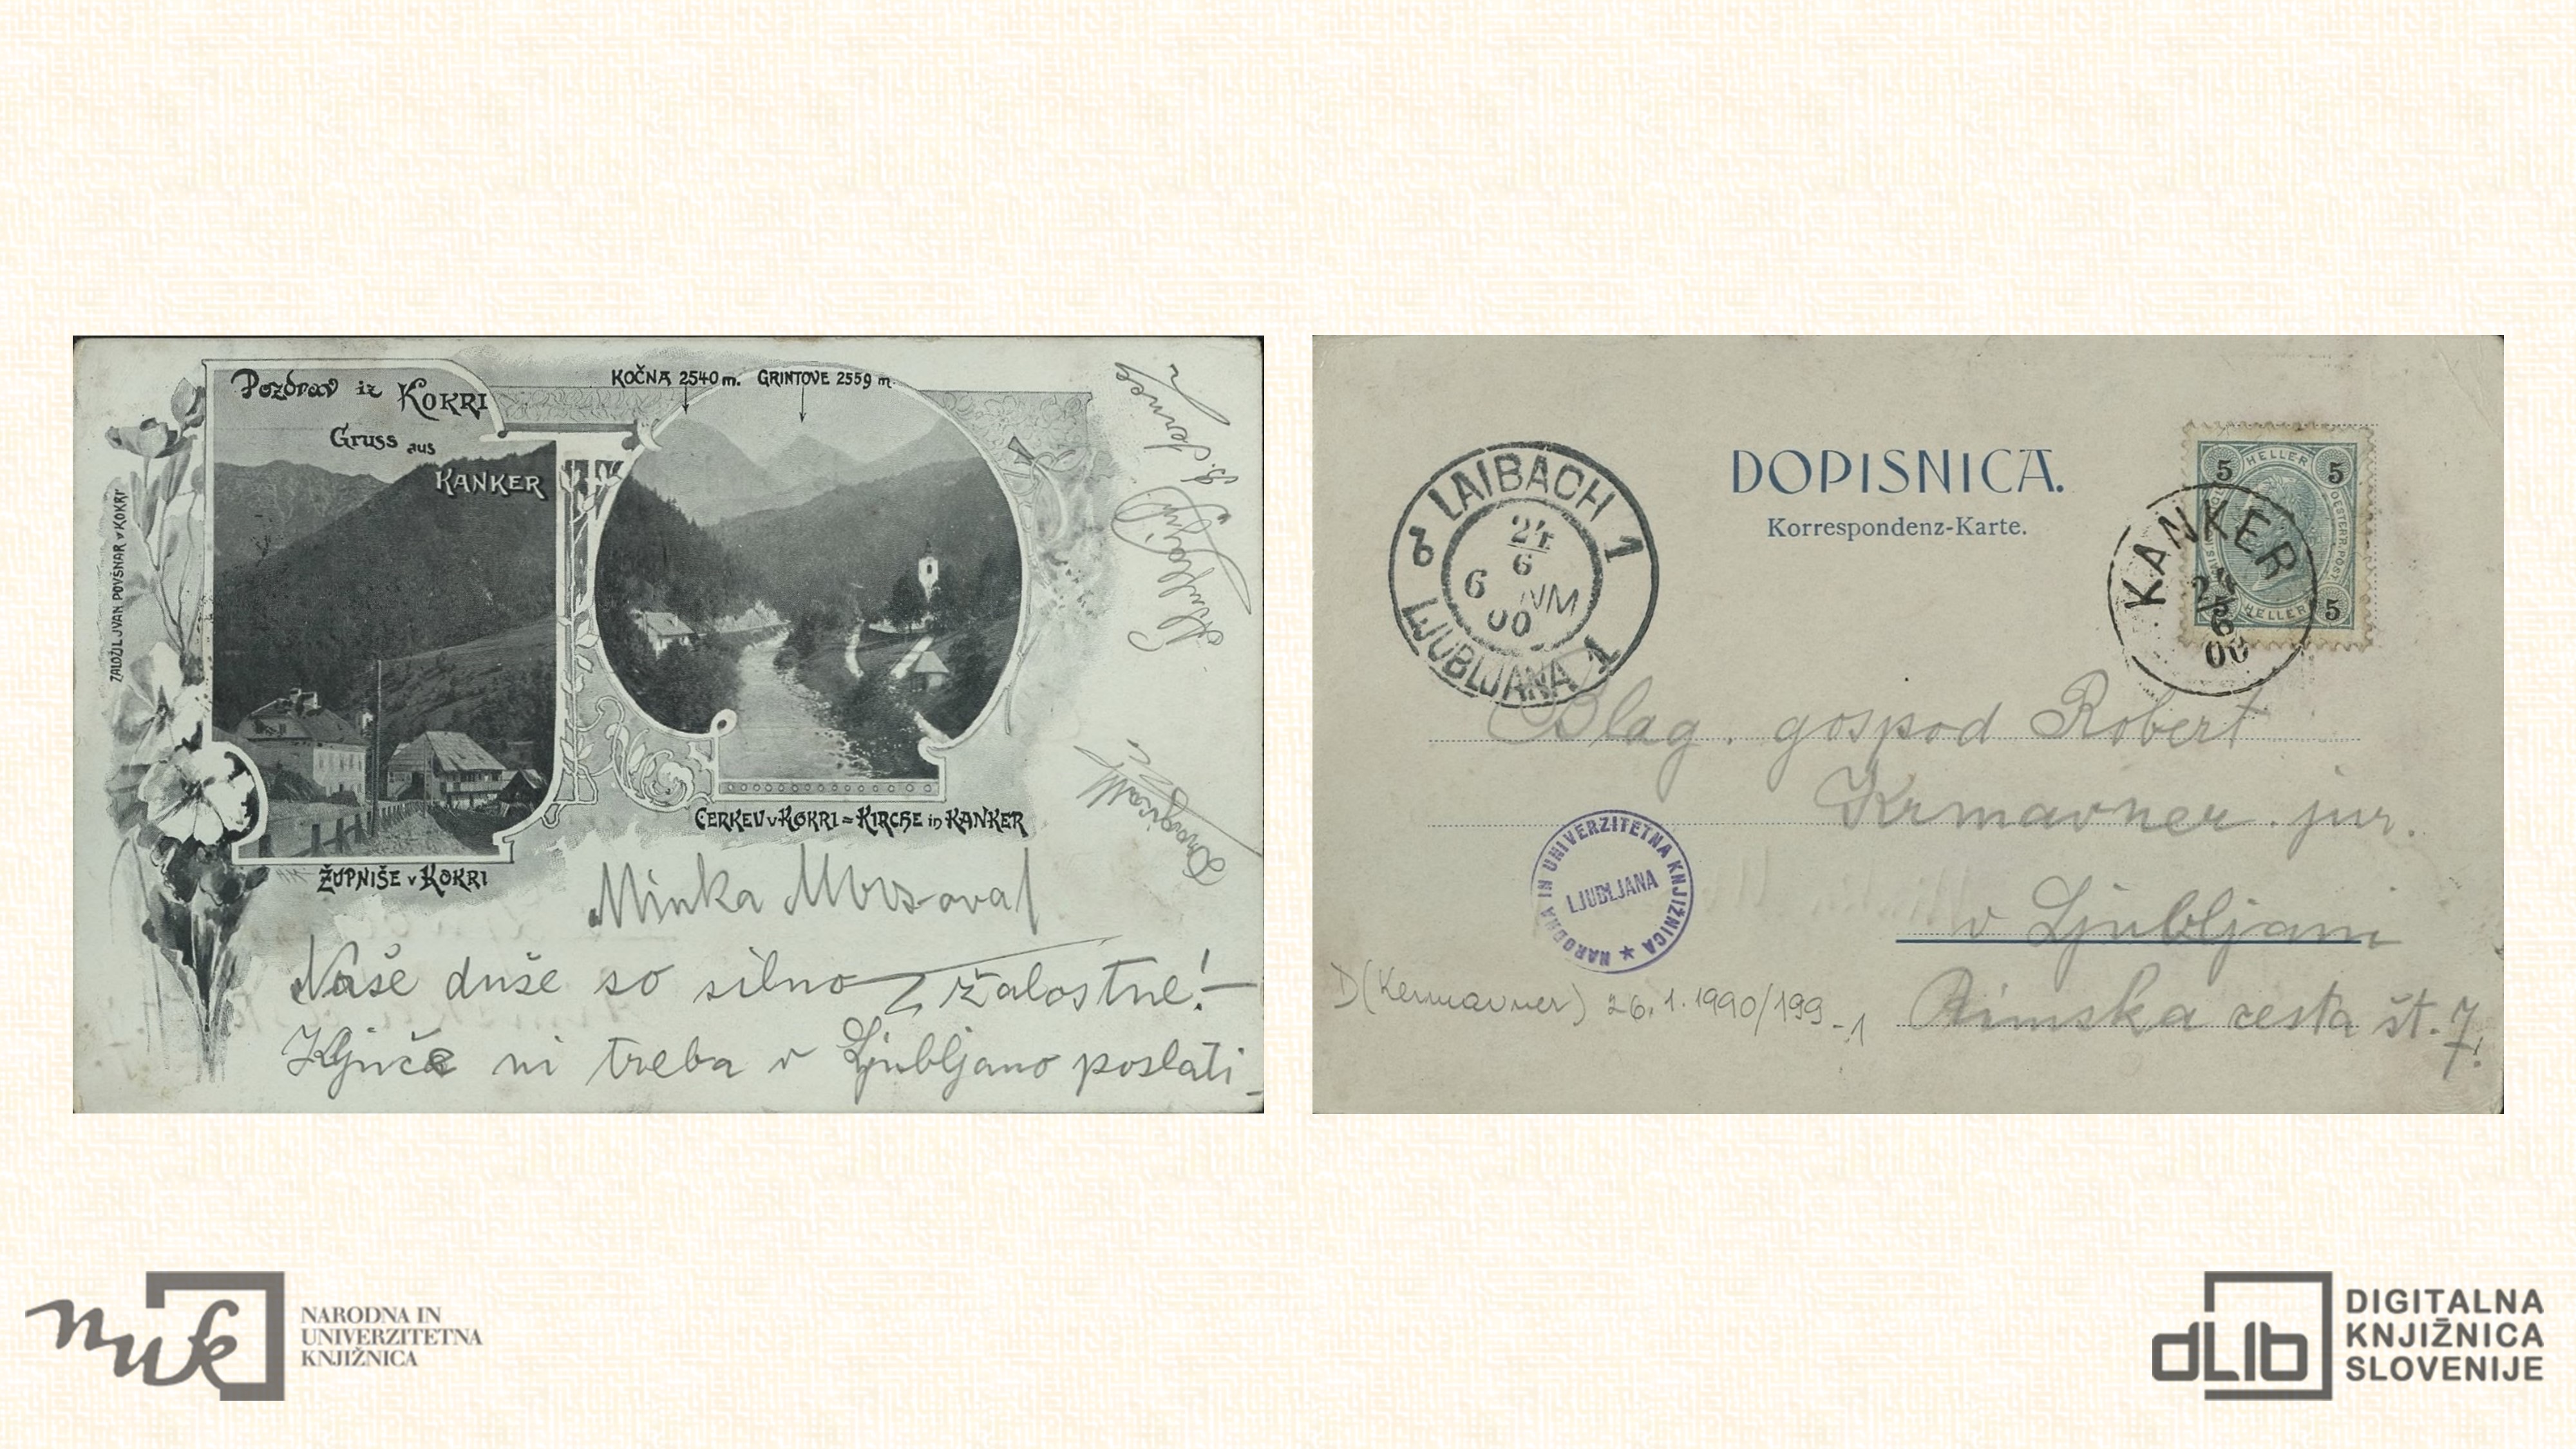 Pozdrav iz KOKRI
Gruss aus
KANKER
KOČNA 2540 m. GRINTOVE 2559 m.
ZALOŽIL IVAN POVŠNAR v KOKRI
CERKEV v KOKRI = KIRCHE in KANKER
ŽUPNIŠE v KOKRI
Minka
Naše duše so silno žalostne! –
Ključe ni treba v Ljubljano poslati –
DOPISNICA.
Korrespondenz-Karte.
LAIBACH 1
24
6
6 NM
00
LJUBLJANA 1
5 HELLER 5
HELLER 5
KANKER
24
6
00
Blag. gospod Robert
Krmavner jur.
v Ljubljani
Rimska cesta št. 7.
NARODNA IN UNIVERZITETNA KNJIŽNICA ★
LJUBLJANA
D(Kermavner) 26.1.1990/199-1
nuk
NARODNA IN
UNIVERZITETNA
KNJIŽNICA
dLib
DIGITALNA
KNJIŽNICA
SLOVENIJE